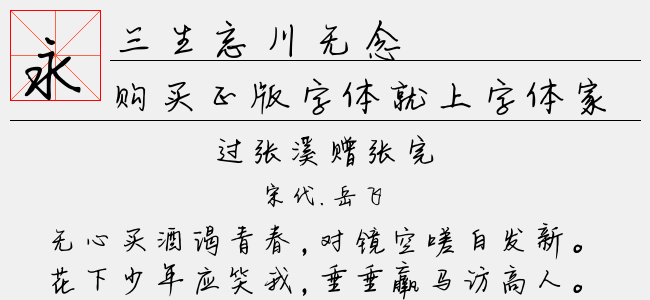 永
兰生忘川无念
购买正版字体就上字体家
过张溪赠张完
宋代.岳飞
无心买酒谒青春,对镜空嗟白发新。
花下少年应笑我,垂垂羸马访高人。